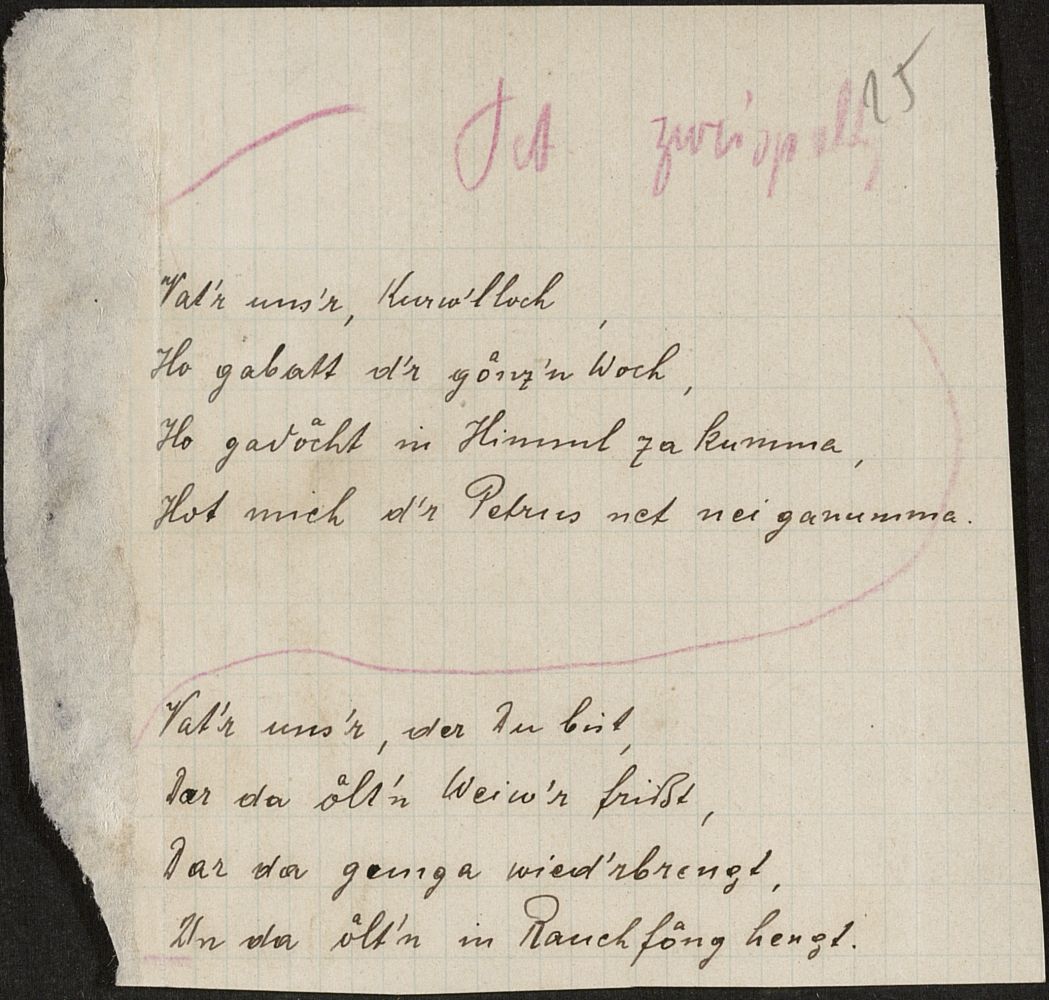 25
zweispaltig
Vat'r uns'r, Kurw'lloch,
Ho gabatt d'r gånz'n Woch,
Ho gadåcht in Himml za kumma,
Hot mich d'r Petrus net nei ganumma.
Vat'r uns'r, der Du bist,
Dar da ålt'n Weiw'r frißt,
Dar da gunga wied'rbrengt,
Un da ålt'n in Rauchfång hengt.